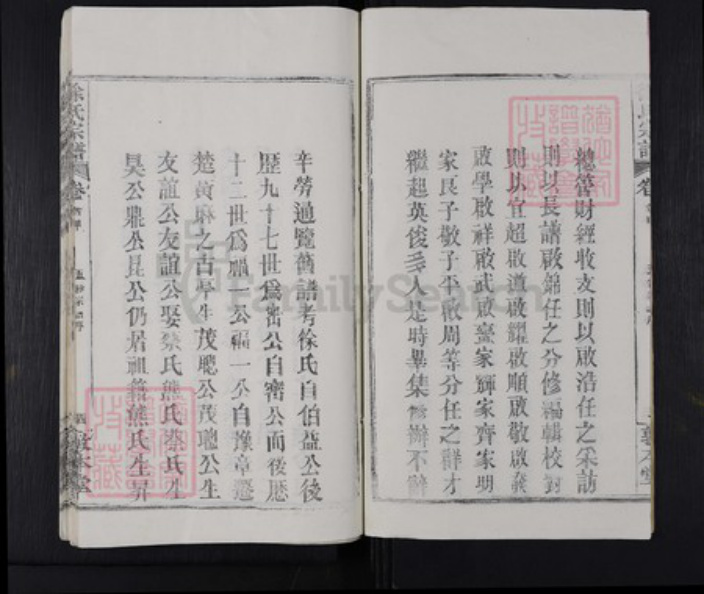 總管財經收支則以啟浩任之采訪
則以長請啟錦任之分修編輯校對
則以宜超啟道啟耀啟順啟敬啟葵
啟學啟祥啟武啟臺家輝家齊家明
家良子敬子平啟周等分任之群才
繼起英俊多人是時畢集修辦不辭
辛勞通覽舊譜考徐氏自伯益公後
歷九十七世為密公自密公而後歷
十二世為福一公福一公自豫章遷
楚黃麻之古早生茂聰公茂聰公生
友諠公友誼公娶蔡氏熊氏蔡氏生
昊公鼎公昆公仍居祖籍熊氏生昇
徐氏宗譜
卷
敦本堂
FamilySearch